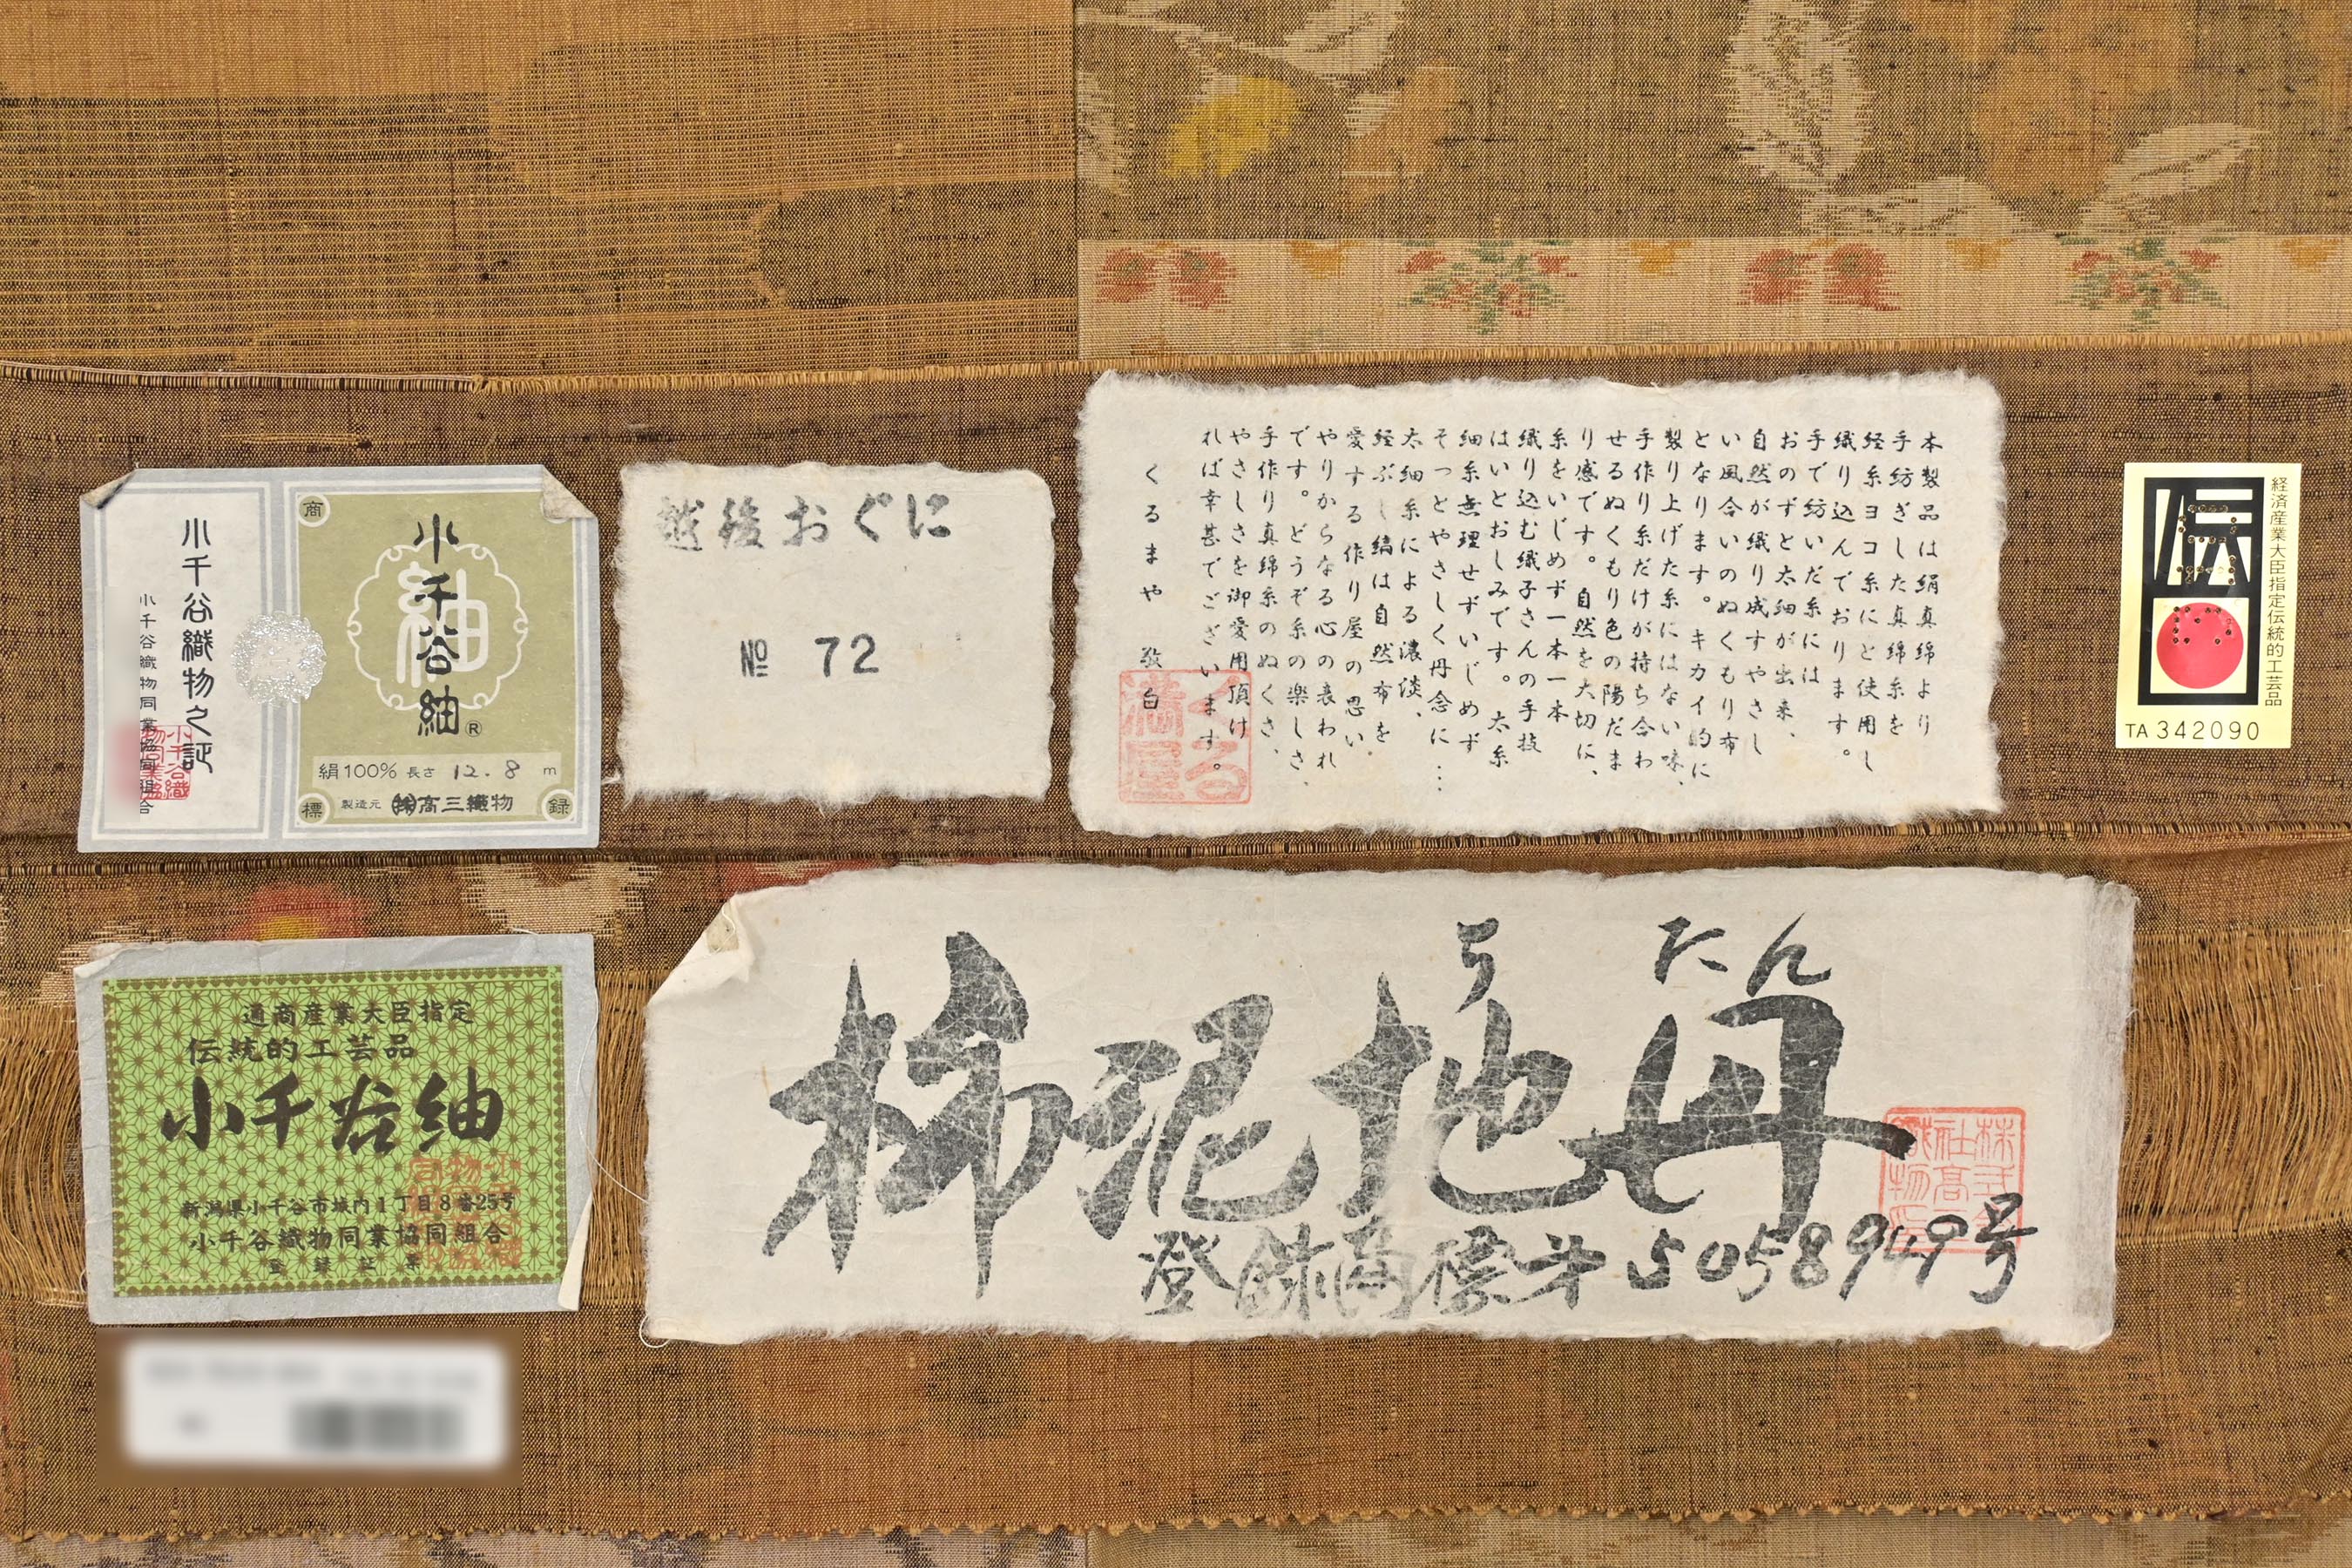 小千谷織物之証
小千谷織物同業協同組合
商
標
登
録
小千谷紬®
紬
絹100% 長さ 12.8 m
製造元 ㈱高三織物
越後おぐに
№ 72
本製品は絹真綿より
手紡ぎした真綿糸を
経糸ヨコ糸にと使用し
織り込んでおります。
手で紡いだ糸には
おのずと太細が出来、
自然が織り成すやさし
い風合いのぬくもり布
となります。キカイ的に
製り上げた糸にはない味、
手作り糸だけが持ち合わ
せるぬくもり色の陽だま
り感です。自然を大切に、
糸をいじめず一本一本
織り込む織子さんの手技
はいとおしみです。太糸
細糸無理せずいじめず
そっとやさしく丹念に…
太細糸による濃淡、
経ぶし縞は自然布を
愛する作り屋の思い
やりからなる心の表われ
です。どうぞ糸の楽しさ、
手作り真綿糸のぬくさ、
やさしさを御愛用頂け
れば幸甚でございます。
くるまや 敬白
くるま屋
経済産業大臣指定伝統的工芸品
伝
TA 342090
通商産業大臣指定
伝統的工芸品
小千谷紬
新潟県小千谷市城内1丁目8番25号
小千谷織物同業協同組合
登録証票
たん ち
丹地泥柿
登録商標第5058949号